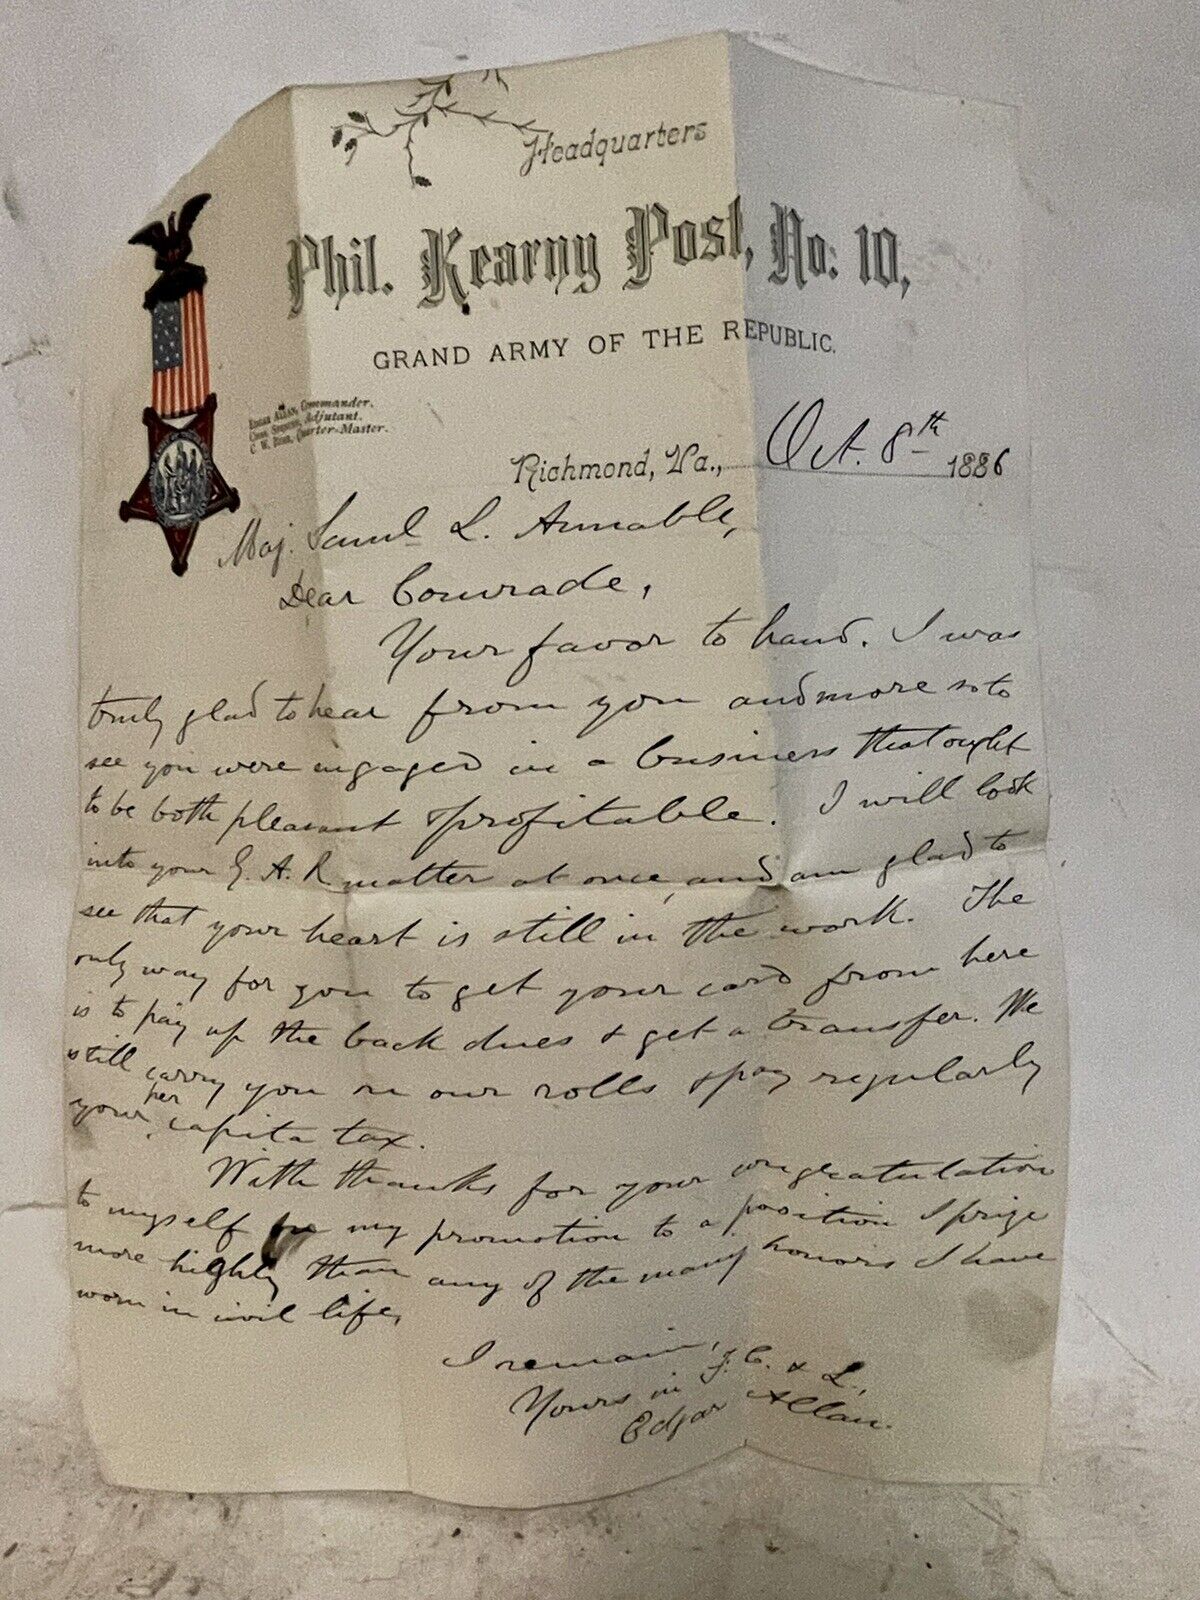 Headquarters
Phil. Kearny Post, No: 10,
GRAND ARMY OF THE REPUBLIC.
EDGAR ALLAN, Commander.
Adjutant.
C. W. Quarter-Master.
Richmond, Va., Oct. 8th 1886
Maj. Saml L. Annable,
Dear Comrade,
Your favor to hand. I was
truly glad to hear from you and more so to
see you were engaged in a business that ought
to be both pleasant & profitable. I will look
into your G. A. R matter at once, and am glad to
see that your heart is still in the work. The
only way for you to get your card from here
is to pay up the back dues & get a transfer. We
still carry you on our rolls & pay regularly
your per capita tax.
With thanks for your congratulation
to myself for my promotion to a position I prize
more highly than any of the many honors I have
worn in civil life,
I remain,
Yours in F. C. & L.,
Edgar Allan.